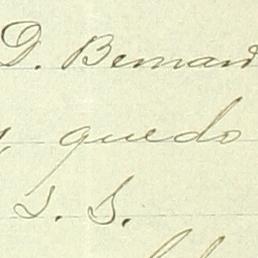 D. Bernard
quedo
S. S.